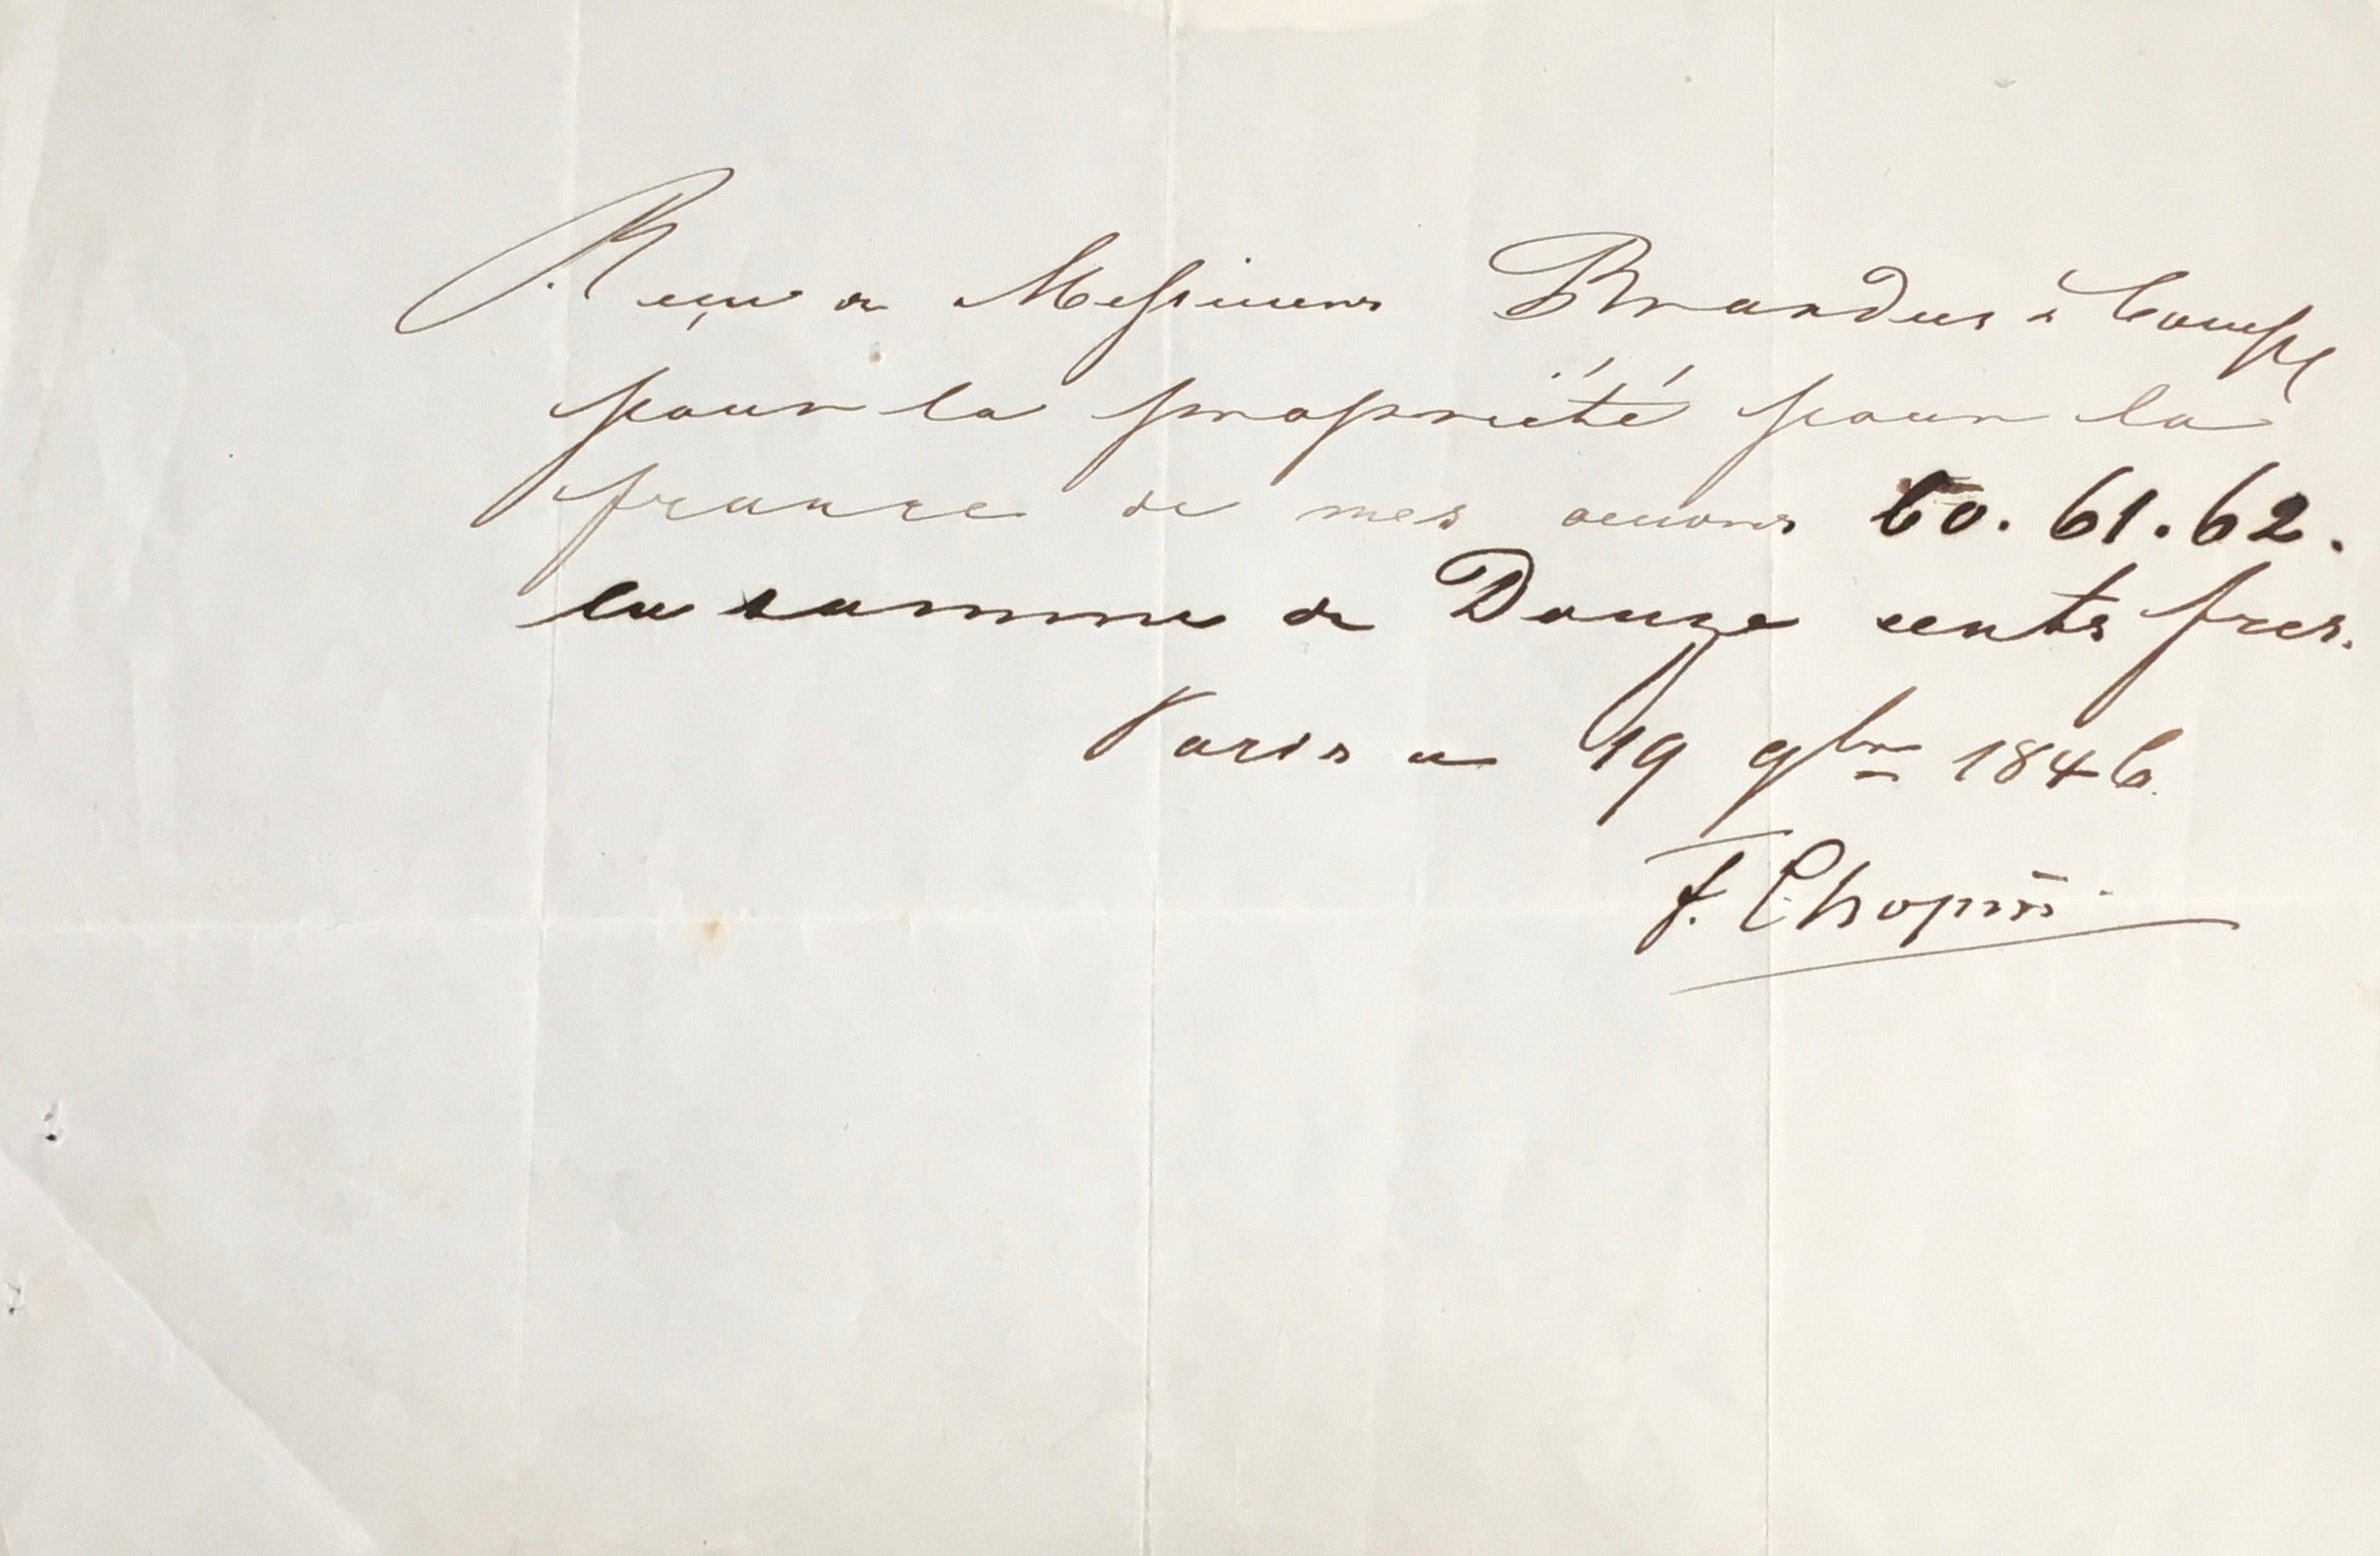 Reçu de Messieurs Brandus & Compe
pour la propriété pour la
france de mes œuvres 60. 61. 62.
la somme de Douze cents frcs.
Paris ce 19 9bre 1846.
F. Chopin